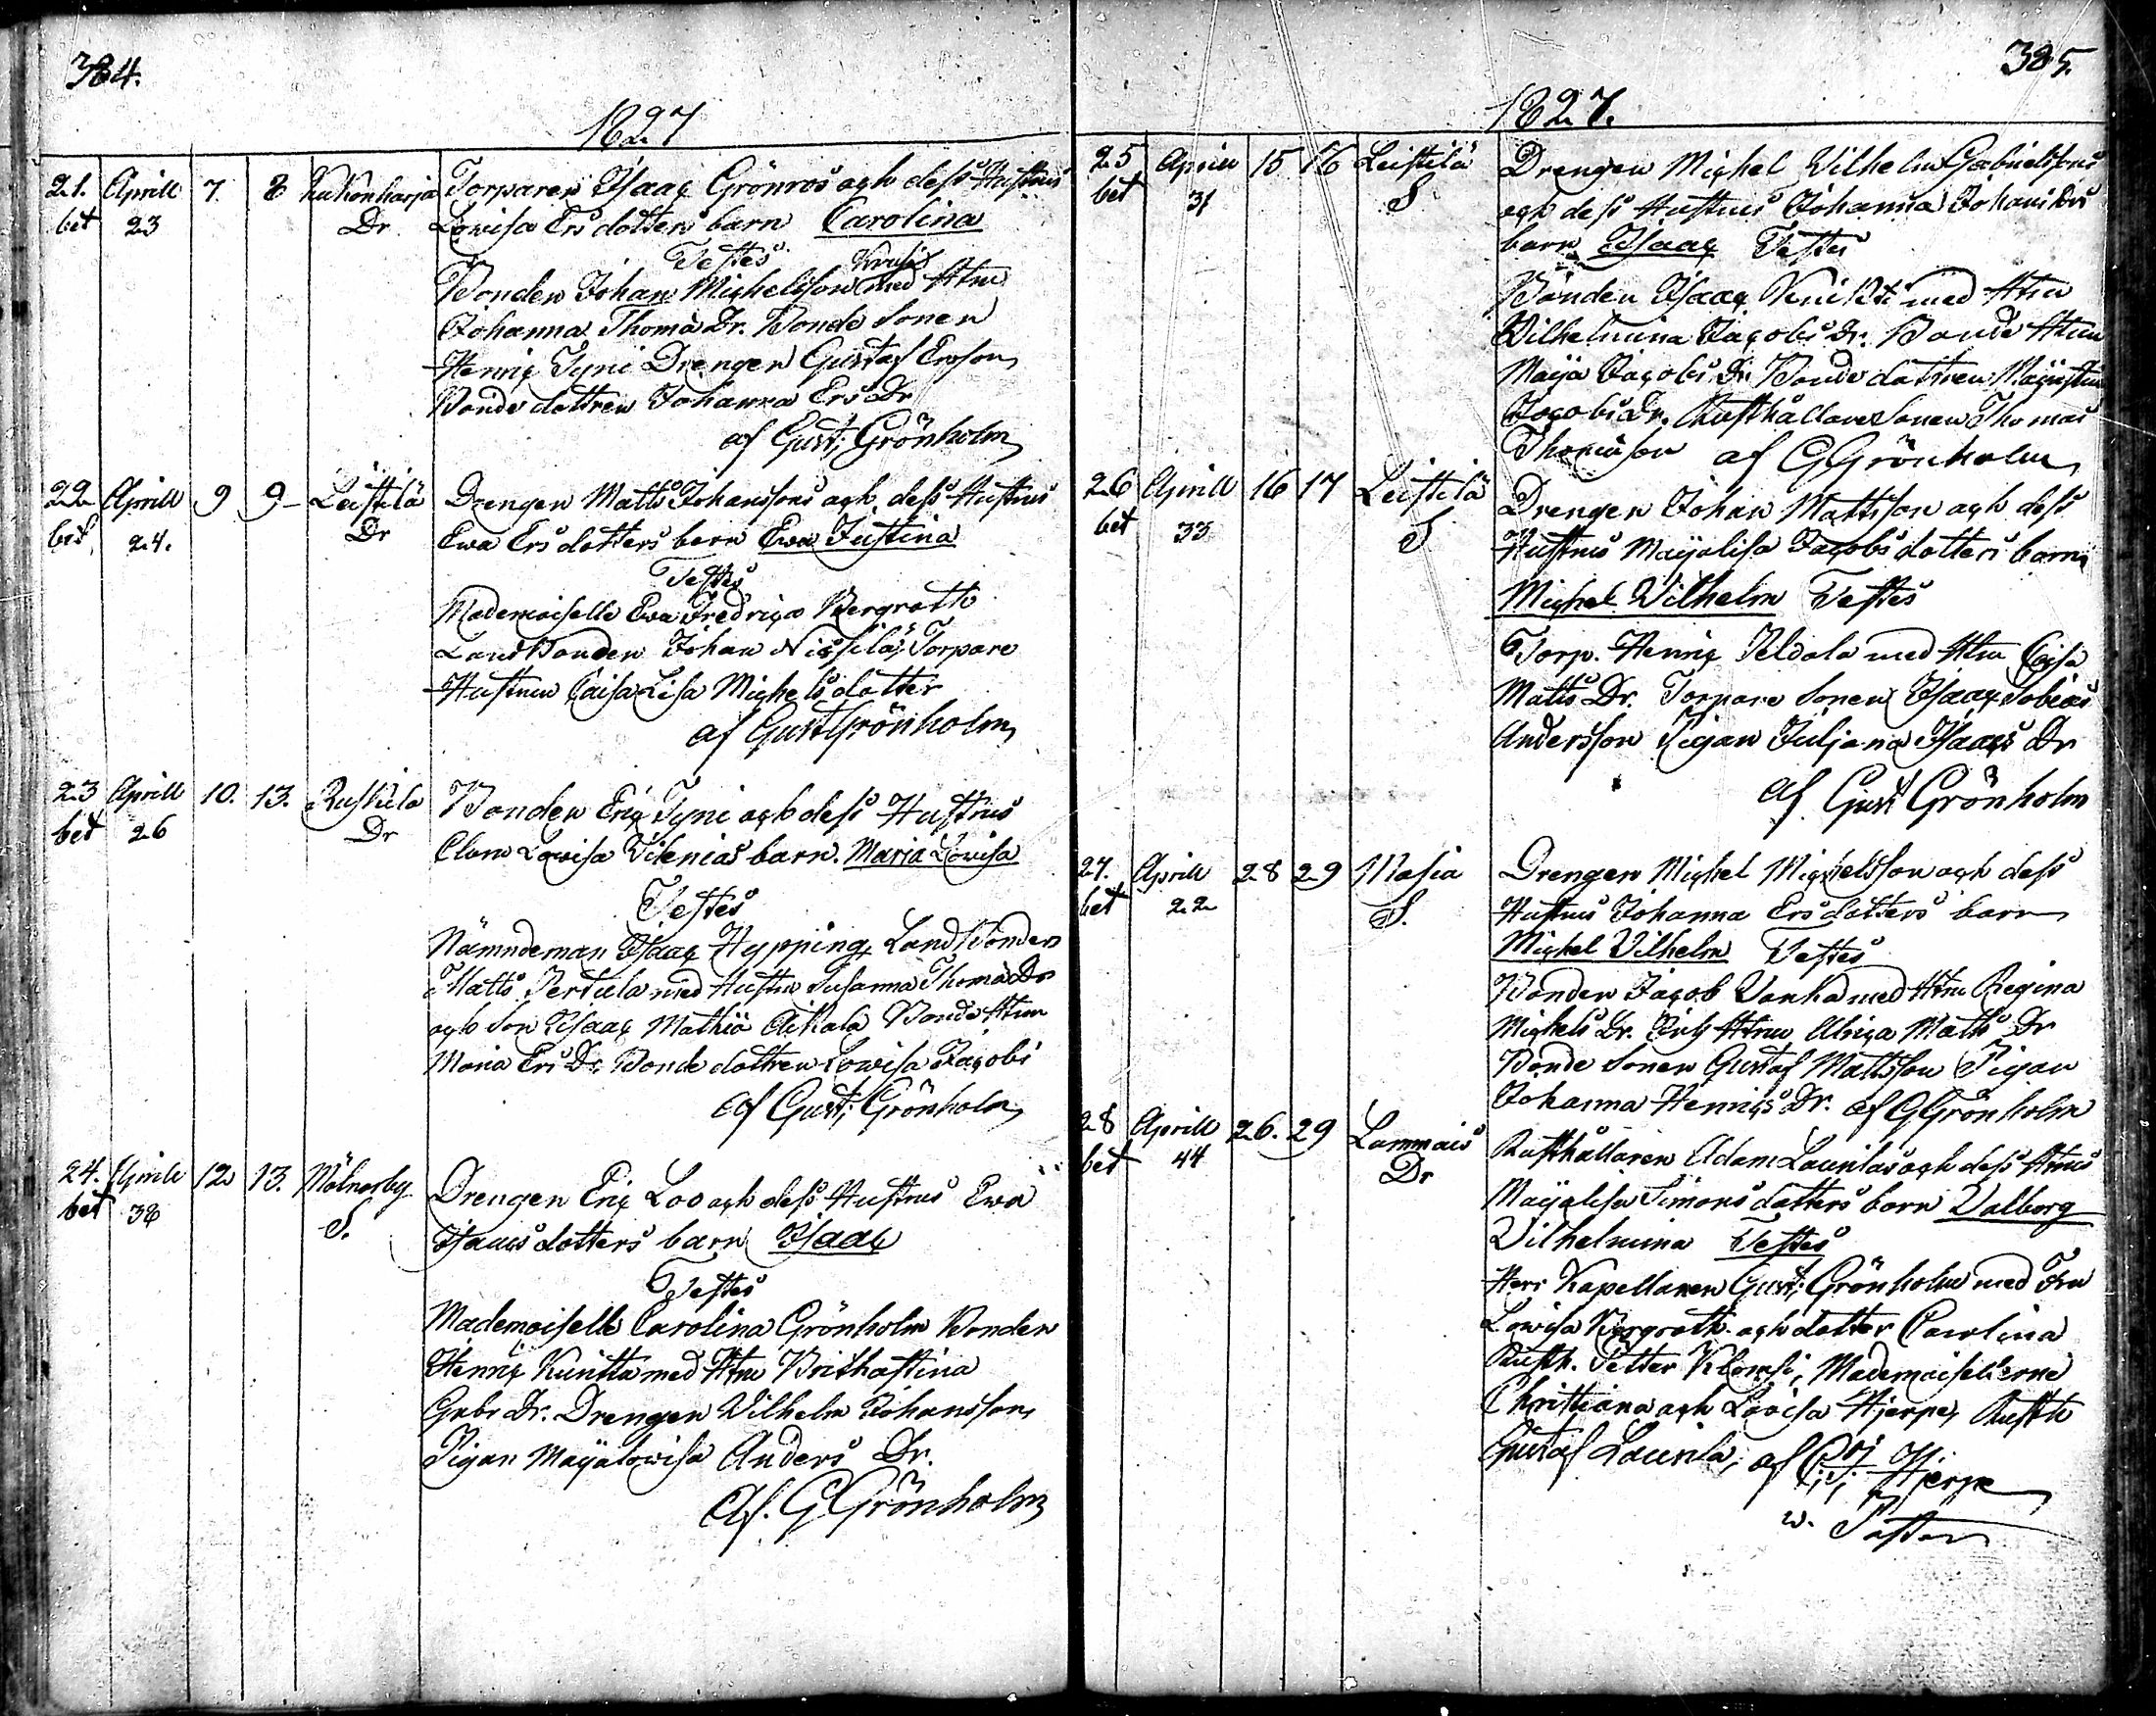 384.
1827
21. Aprill 7. 8 Kukonharja Torparen Isaac Grönros och dess Hustrus
bet 23 Dr Lowisa Ersdotters barn Carolina
Testes
Bonden Johan Michelsson med Htru
Johanna Thomæ Dr. Bonde Sonen
Henric Tyni Drengen Gustaf Ersson
Bonde dottren Johanna Ers Dr
af Gust: Grönholm
22 Aprill 9 9 Leistilä Drengen Matts Johanssons och dess Hustrus
bet 24. Dr Ewa Ersdotters barn Ewa Justina
Testes
Mademoiselle Ewa Fredrica Bergroth
LandBonden Johan Nissilä, Torpare
Hustrun Caisa Lisa Michelsdotter
af Gust Grönholm
23 Aprill 10. 13. Ruskila Bonden Eric Tyni och dess Hustrus
bet 26 Dr Lowisa barn. Maria Lowisa
Testes
Nämndeman Isaac Hypping, LandBonden
Matts Pertula med Hustru Susanna Thomæ Dr
och Son Isaac Bonde Htrun
Maria Ers Dr. Bonde dottren Lowisa Jacobs
af Gust: Grönholm
24. Aprill 12 13. Mölnarby Drengen Eric Loo och dess Hustrus Ewa
bet 38 S. Isaacs dotters barn Isaac
Testes
Mademoiselle Carolina Grönholm Bonden
Henric Kunitta med Htru Brithastina
Gabr Dr. Drengen Vilhelm Johansson,
Pigan Majalowisa Anders Dr.
Af. G Grönholm
385.
1827.
25 Aprill 15 16 Leistilä Drengen Michel Vilhelm Gabrielssons
bet 31 S och dess Hustrus Johanna Johans Drs
barn Isaac Testes
Bonden Isaac med Htru
Vilhelmina Jacobs Dr. Bonde Htrun
Maja Jacobs Dr Bonde dottren Majastina
Jacobs Dr. Rusthållare Sonen Thomas
Thomasson af G Grönholm
26 Aprill 16 17 Leistilä Drengen Johan Mattsson och dess
bet 33 S Hustrus Majalisa Jacobsdotters barn
Michel Vilhelm Testes
Torp. Henric Peldola med Htru Cajsa
Matts Dr. Torpare Sonen Isaac Tobias
Andersson Pigan Juljana Isaacs Dr
af Gust Grönholm
27. Aprill 28 29 Masia Drengen Michel Michelsson och dess
bet 22 S. Hustrus Johanna Ersdotters barn
Michel Vilhelm Testes
Bonden Jacob Vanha med Htru Regina
Michels Dr. Htrun Ulrica Matts Dr
Bonde Sonen Gustaf Mattsson Pigan
Johanna Henrics Dr. af G Grönholm
28 Aprill 26. 29 Lammais Rusthållaren Adam Launilas och dess Htrus
bet 44 Dr Majalisa Simonsdotters barn Valborg
Vilhelmina Testes
Herr Kapellanen Gust: Grönholm med Fru
Lowisa Bergroth och dotter Carolina
Rusth. Petter Klemsi, Mademoisellerne
Christiana och Lovisa Hjerpe, Rusth
Gustaf Launila, af Hjerpe
w. Pastor